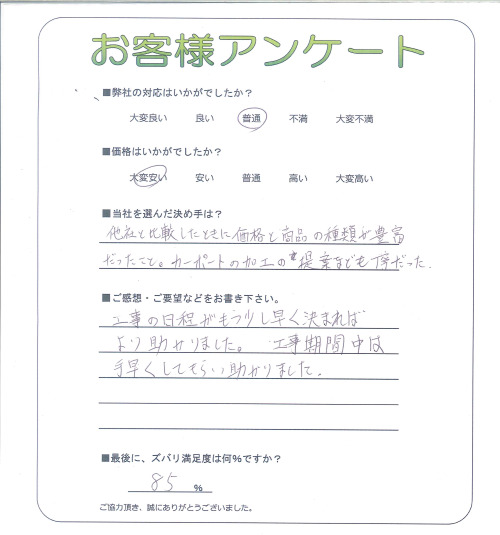 お客様アンケート
■弊社の対応はいかがでしたか？
大変良い 良い 普通 不満 大変不満
■価格はいかがでしたか？
大変安い 安い 普通 高い 大変高い
■当社を選んだ決め手は？
他社と比較したときに価格と商品の種類が豊富
だったこと。カーポートの加工の提案なども丁寧だった.
■ご感想・ご要望などをお書き下さい。
工事の日程がもう少し早く決まれば
より助かりました。 工事期間中は
手早くしてもらい助かりました.
■最後に、ズバリ満足度は何%ですか？
85 %
ご協力頂き、誠にありがとうございました。